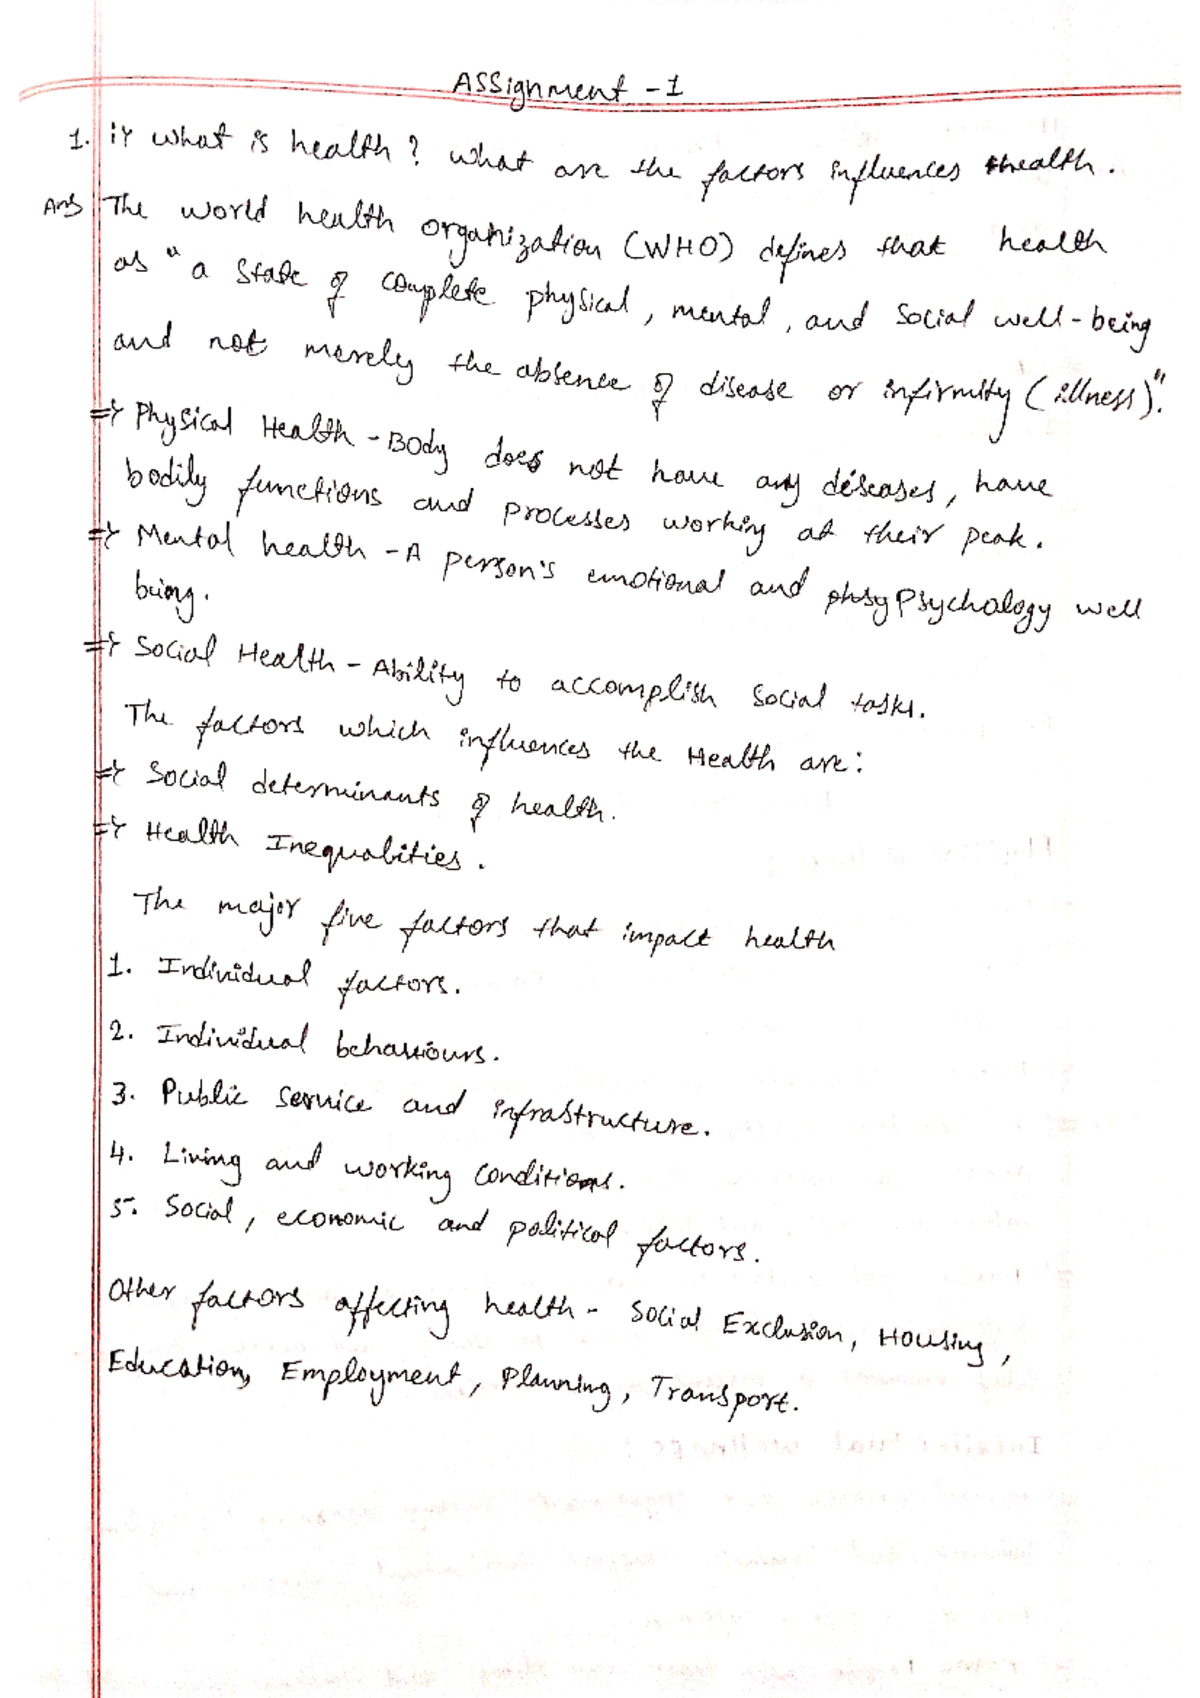 Assignment - 1
1. i> What is health? What are the factors influences health.
Ans The world health organization (WHO) defines that health
as "a state of complete physical, mental, and social well-being
and not merely the absence of disease or infirmity (illness)".
=> Physical Health - Body does not have any diseases, have
bodily functions and processes working at their peak.
=> Mental health - A person's emotional and Psychology well
being.
=> Social Health - Ability to accomplish social tasks.
The factors which influences the Health are:
=> Social determinants of health.
=> Health Inequalities.
The major five factors that impact health
1. Individual factors.
2. Individual behaviours.
3. Public service and infrastructure.
4. Living and working conditions.
5. Social, economic and political factors.
Other factors affecting health - Social Exclusion, Housing,
Education, Employment, Planning, Transport.